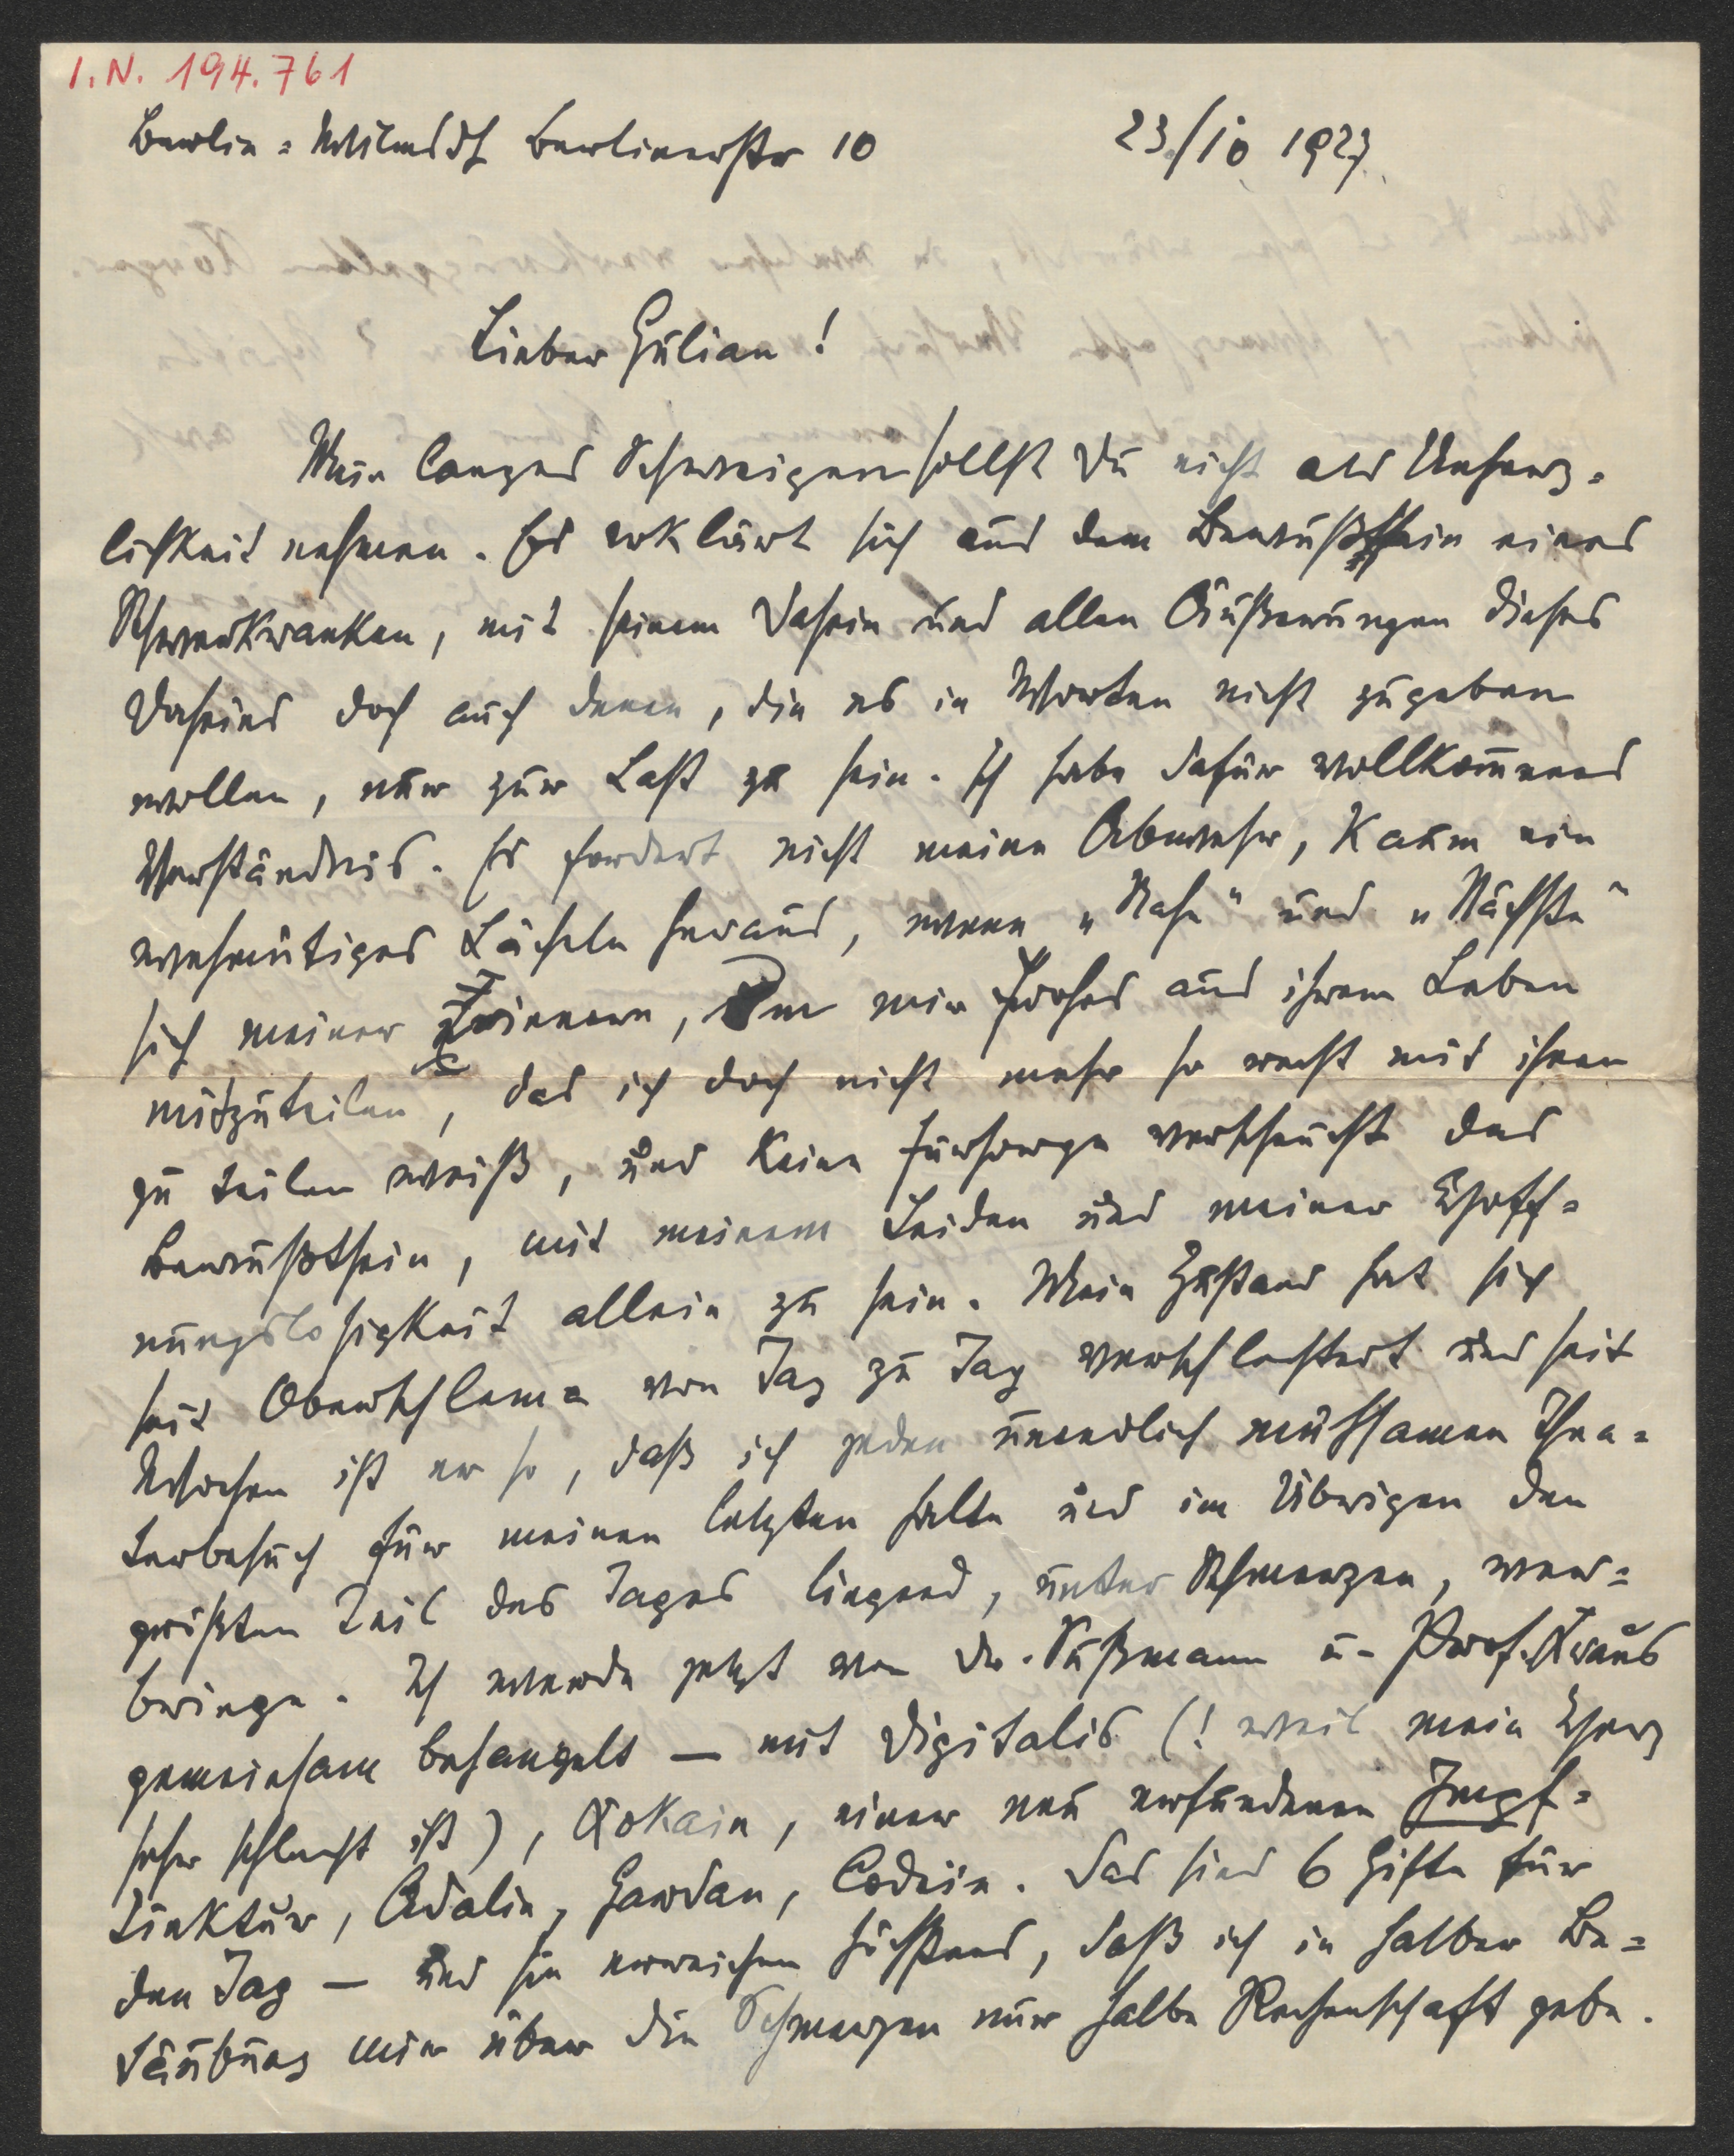 I.N. 194.761
Berlin-Wilmsdf Berlinerstr 10 23/10 1927.
Lieber Julian!
Mein langes Schweigen sollst Du nicht als Unherz-
lichkeit nehmen. Es erklärt sich aus dem Bewußtsein eines
Schwerkranken, mit seinem Dasein und allen Äußerungen dieses
Daseins doch auch denen, die es in Worten nicht zugeben
wollen, nur zur Last zu sein. Ich habe dafür vollkom̄enes
Verständnis. Es fordert nicht meine Abwehr, kaum ein
wehmütiges Lächeln heraus, wenn „Nahe" und „Nächste"
sich meiner erinnern, um mir Frohes aus ihrem Leben
mitzuteilen, das ich doch nicht mehr so recht mit ihnen
zu teilen weiß, und keine Fürsorge verscheucht das
Bewußtsein, mit meinem Leiden und meiner Hoff-
nungslosigkeit allein zu sein. Mein Zustand hat sich
seit Oberschlema von Tag zu Tag verschlechtert und seit
Wochen ist er so, daß ich jeden unendlich mühsamen Thea-
terbesuch für meinen letzten halte und im Übrigen den
größten Teil des Tages liegend, unter Schmerzen, ver-
bringe. Ich werde jetzt von Dr. Sußmann u. Prof. Kraus
gemeinsam behandelt — mit Digitalis (! weil mein Herz
sehr schlecht ist), Kokain, einer neu erfundenen Impf-
tinktur, Adalin, Gardan, Codein. Das sind 6 Gifte für
den Tag — und sie erreichen höchstens, daß ich in halber Be-
täubung mir über die Schmerzen nur halbe Rechenschaft gebe.